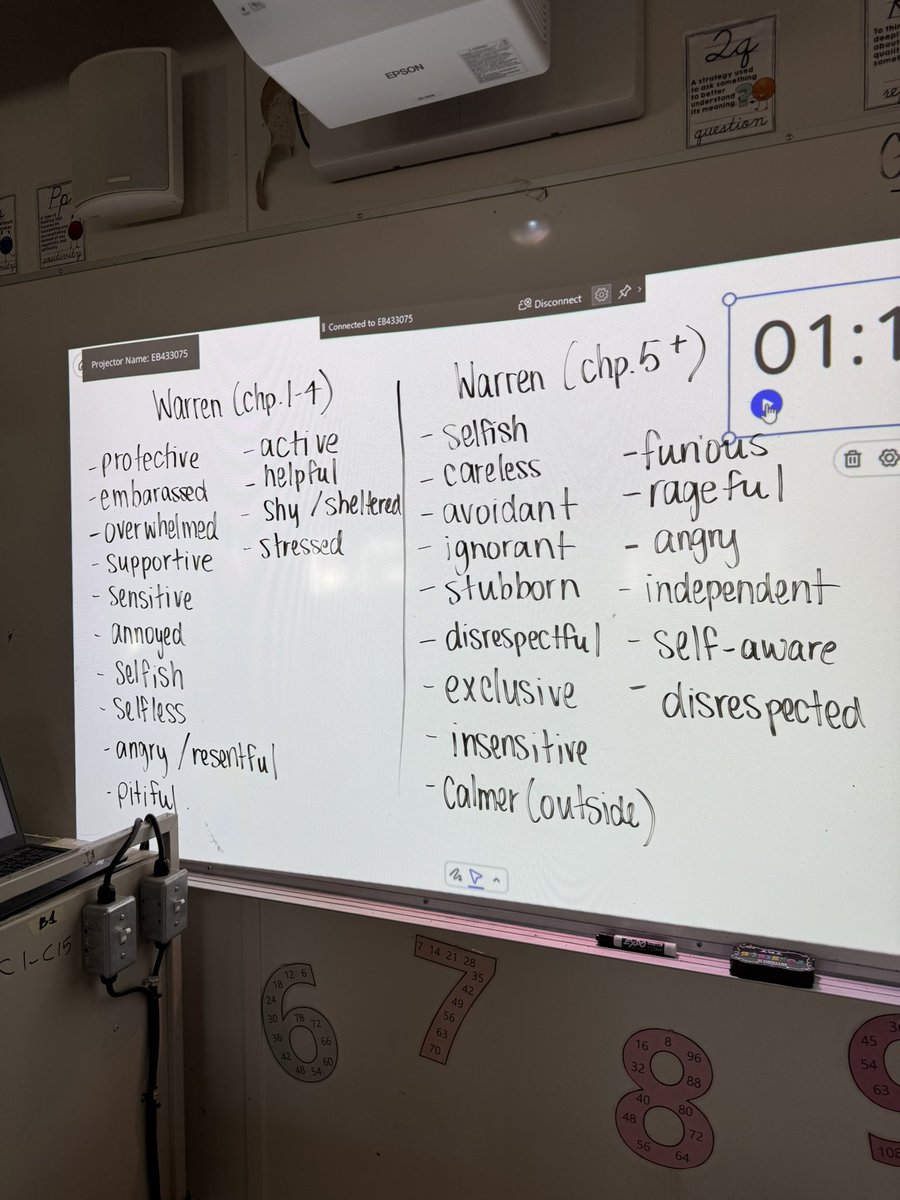 EPSON
Qq
A strategy used
to ask something
to better
understand
its meaning.
question
To thin
deepl
about
qualit
somet
re
Pp
positivity
Disconnect
Connected to EB433075
Projector Name: EB433075
01:1
Warren (chp.1-4)
- protective
- embarassed
- overwhelmed
- supportive
- sensitive
- annoyed
- selfish
- selfless
- angry / resentful
- pitiful
- active
- helpful
- shy / sheltered
- stressed
Warren (chp.5+)
- selfish
- careless
- avoidant
- ignorant
- stubborn
- disrespectful
- exclusive
- insensitive
- calmer (outside)
- furious
- rageful
- angry
- independent
- self-aware
- disrespected
EXPO
B1
C1-C15
6 12 18 24 30 36 42 48 54 60 66 72 78
7 14 21 28 35 42 49 56 63 70
8 16 32 40 48 56 64 72 80 88 96
45 54 63 108